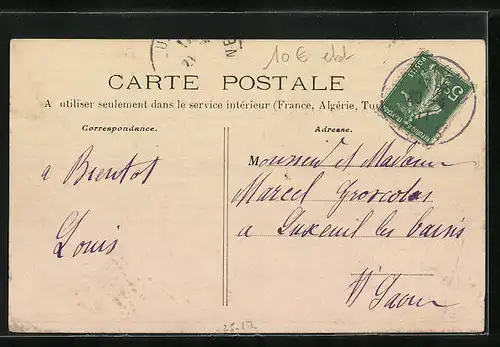 10 € 
CARTE POSTALE
A utiliser seulement dans le service intérieur (France, Algérie,
Correspondance.
Adresse.
a Bientot
Louis
Monsieur et Madame
Marcel Groscolas
a Luxeuil les bains
Hte Saone
25-12